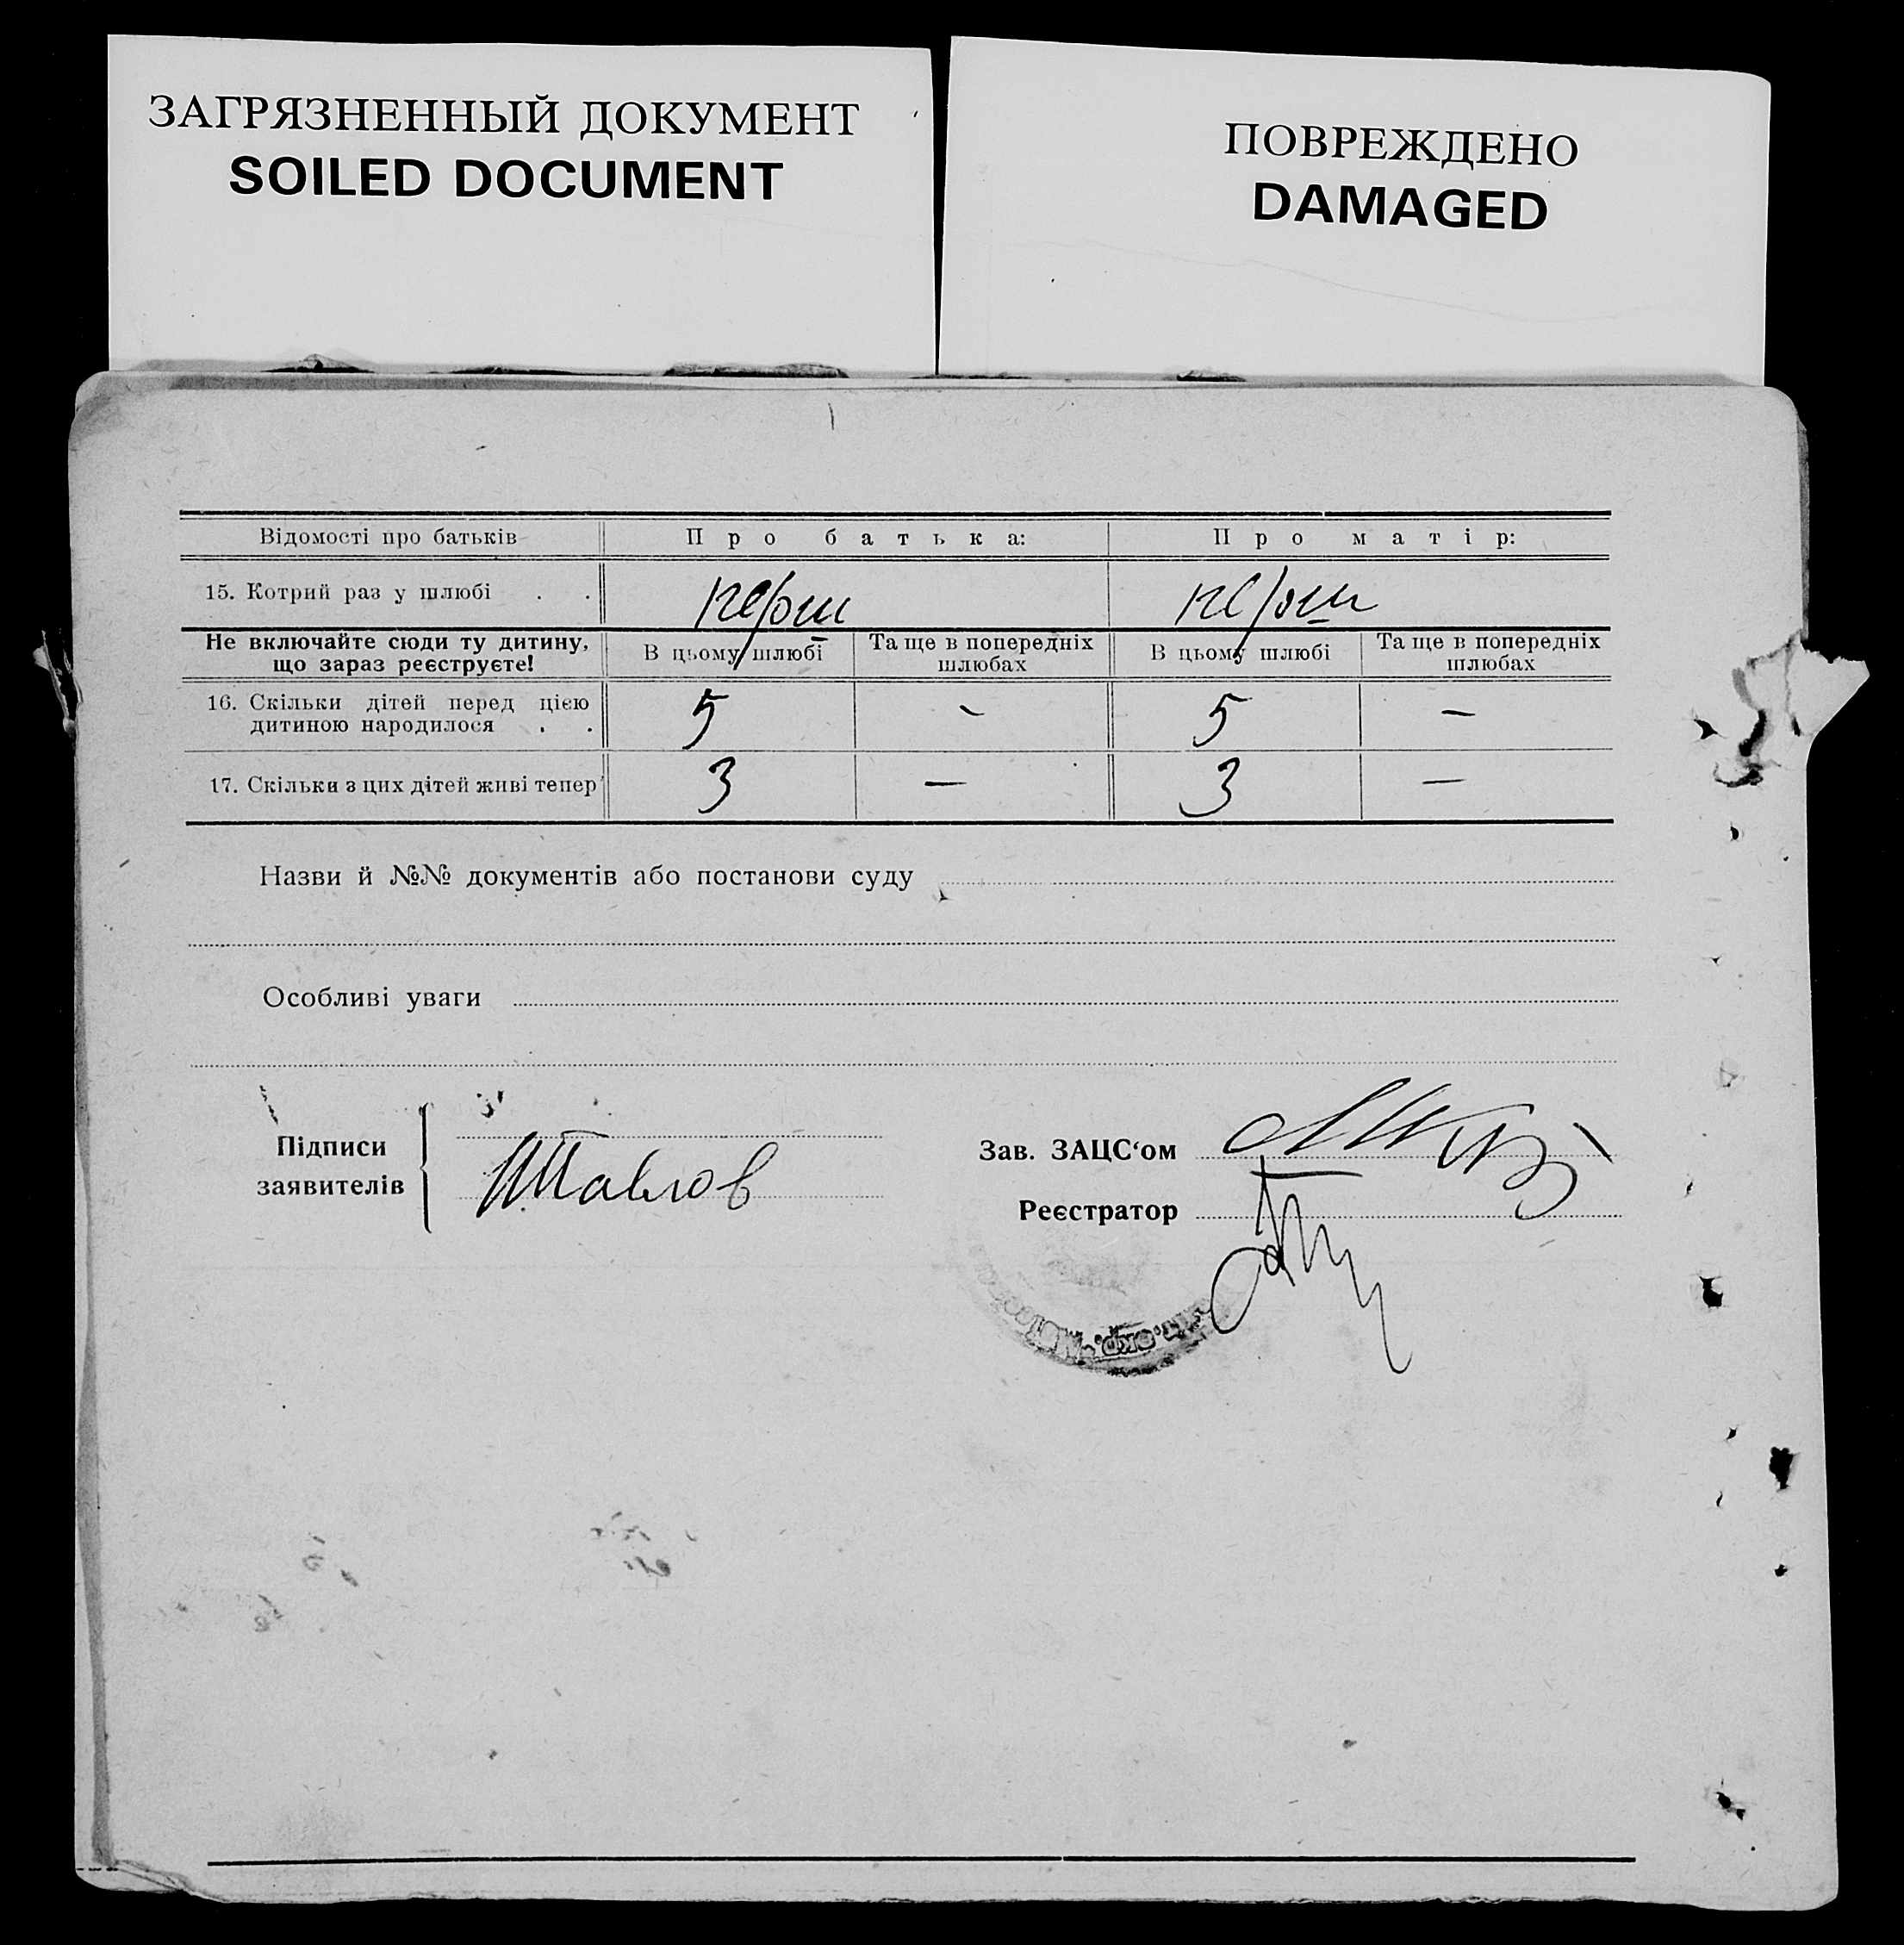 ЗАГРЯЗНЕННЫЙ ДОКУМЕНТ
SOILED DOCUMENT
ПОВРЕЖДЕНО
DAMAGED
Відомості про батьків Про батька: Про матір:
15. Котрий раз у шлюбі . . перш перш
Не включайте сюди ту дитину,
що зараз реєструєте!
В цьому шлюбі
Та ще в попередніх
шлюбах
В цьому шлюбі
Та ще в попередніх
шлюбах
16. Скільки дітей перед цією
дитиною народилося . . 5 - 5 —
17. Скільки з цих дітей живі тепер 3 — 3 —
Назви й №№ документів або постанови суду
Особливі уваги
Підписи
заявителів
Павлов
Зав. ЗАЦС‘ом
Реєстратор